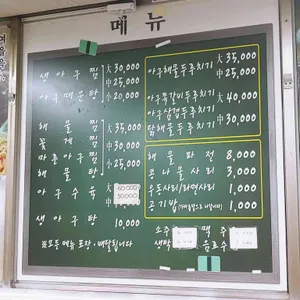 메뉴
생아구찜 大 30,000
中 25,000
아구매운탕 小 20,000
해물찜 大 35,000
꽃게찜
마른아구찜 中 30,000
해물탕 小 25,000
아구수육 大 60,000
中 50,000
생아구탕 10,000
※모든 메뉴 포장·배달됩니다
아구해물두루치기 大 35,000
中 25,000
아구쭉갈비두루치기 大 40,000
아구삼겹두루치기
닭해물두루치기 中 30,000
해물파전 8,000
콩나물사리 3,000
우동사리/라면사리 1,000
공기밥 1,000
소주
맥주
음료수